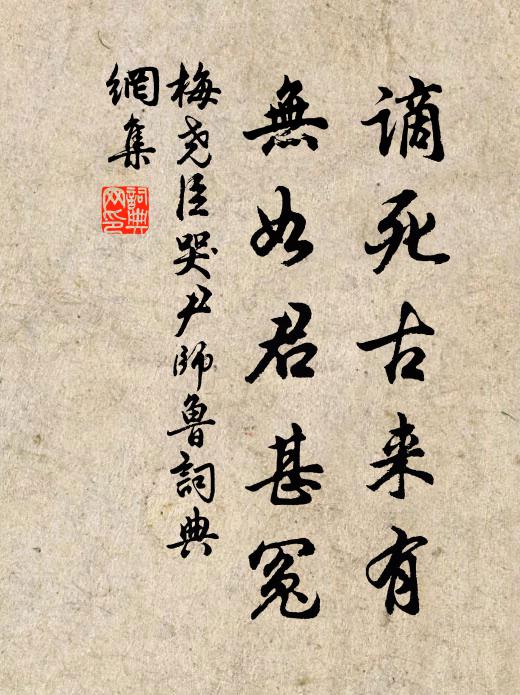 谪死古来有
無如君甚冤
梅尧臣哭尹师魯詞典
網集
詞典网印